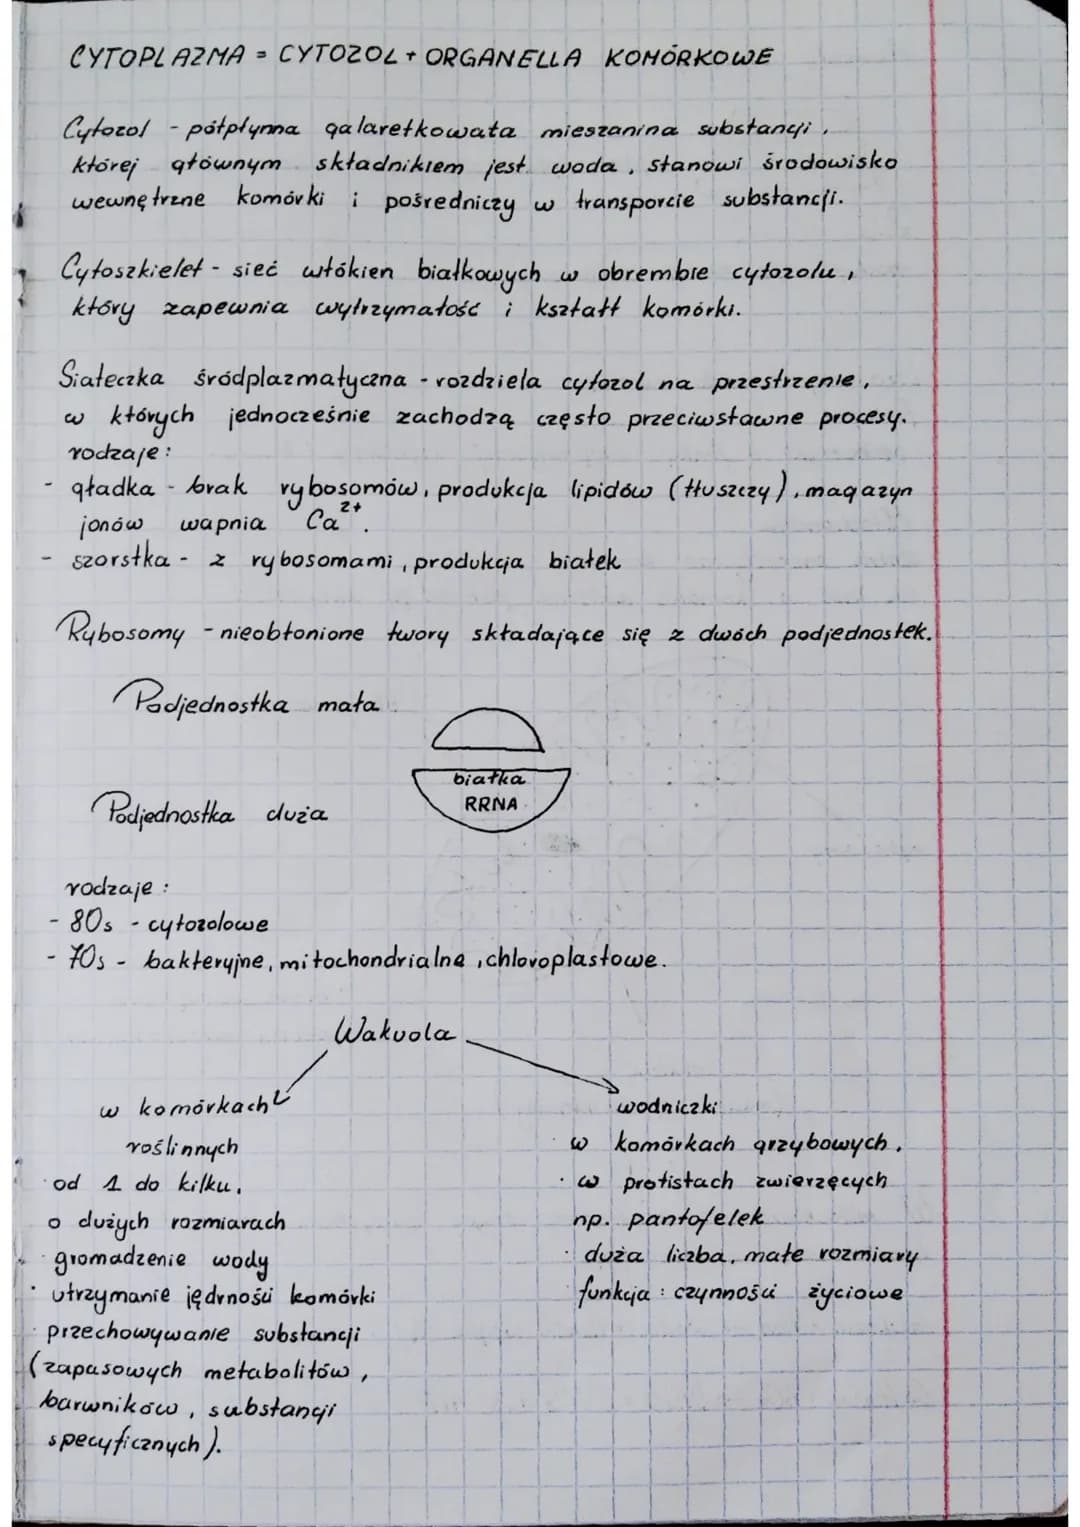 CYTOPLAZMA = CYTOZOL + ORGANELLA KOMÓRKOWE
Cytozol - półpłynna galaretkowata mieszanina substancji,
której głównym składnikiem jest woda, stanowi środowisko
wewnętrzne komórki i pośredniczy w transporcie substancji.
Cytoszkielet - sieć włókien białkowych w obrembie cytozolu,
który zapewnia wytrzymałość i kształt komórki.
Siateczka śródplazmatyczna - rozdziela cytozol na przestrzenie,
w których jednocześnie zachodzą często przeciwstawne procesy.
rodzaje:
- gładka - brak rybosomów, produkcja lipidów (tłuszczy), magazyn
jonów wapnia Ca²⁺.
- szorstka - z rybosomami, produkcja białek
Rybosomy - nieobłonione twory składające się z dwóch podjednostek.
Podjednostka mała
białka
RRNA
Podjednostka duża
rodzaje:
- 80s - cytozolowe
- 70s - bakteryjne, mitochondrialne, chloroplastowe.
Wakuola
w komórkach
roślinnych
· od 1 do kilku,
o dużych rozmiarach
· gromadzenie wody
· utrzymanie jędrności komórki
· przechowywanie substancji
(zapasowych metabolitów,
barwników, substancji
specyficznych).
wodniczki
· w komórkach grzybowych,
· w protistach zwierzęcych
np. pantofelek
· duża liczba, małe rozmiary
funkcja: czynności życiowe